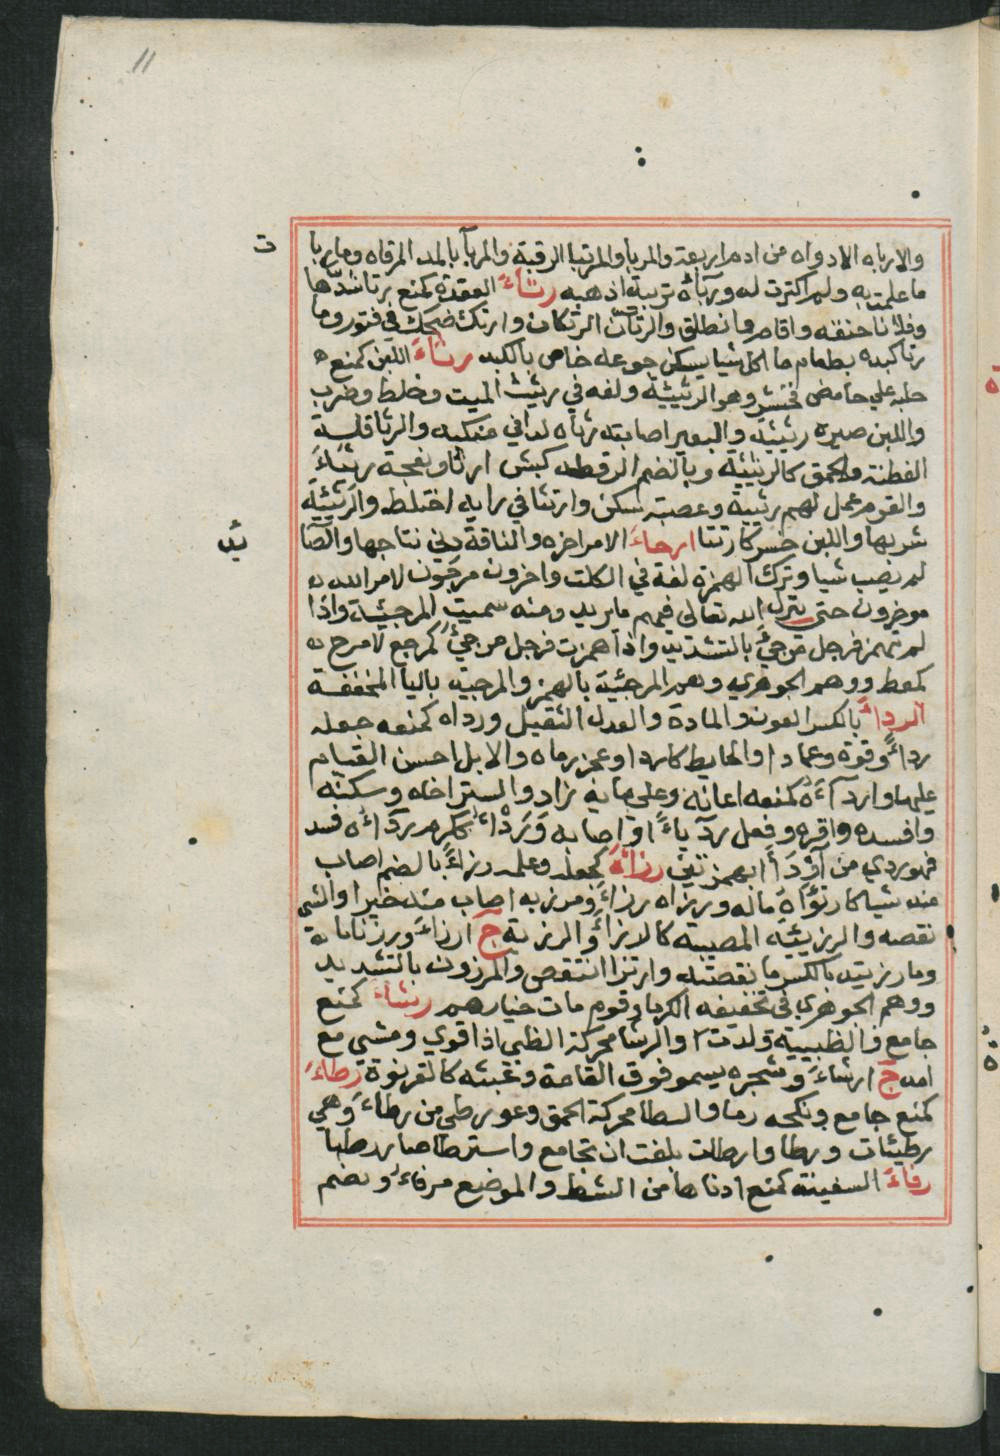 11
والارباه الادواه من ادم اربعة والمربا والمرتبا الرقبة والمربآ بالمد المرقاه وما ربا
ت
ما علمت به ولم اكترث له وربأته تربية اذهبه رتأء العقدة كمنع رتا شدها
وفلانا خنقه واقام وانطلق والرتآن الرتكان وارتك ضحك في فتور وما
رتا كبده بطعام ما اكل شيا يسكن جوعه خاص بالكبد رثأء اللبن كمنع ه
حلبه علي حامض فخثر وهو الرثيئة ولغه في رثيث الميت وخلط وضرب
واللبن صيره رثيئة والبعير اصابته رثاه لدا في منكبه والرثا قلة
الفطنة والحمق كالرثيئة وبالضم الرقطه كبش ارثا ونعجة رثاء
والقوم عمل لهم رثيئة وغضبه سكن وارتثا في رايه اختلط والرثيئة
شربها واللبن خثر كارتثا ارجاء الامر اخره والناقة دني نتاجها والصا
ئد
لم يصب شيا وترك الهمزة لغة في الكلت واخرون مرجون لامر الله ه
موخرون حتي ينزل الله تعالي فيهم ما يريد ومنه سميت المرجئة واذا
لم تهمز فرجل مرجي بالتشديد واذا همزت فرجل مرجئ كمرجع لا مرج ه
كمعط ووهم الجوهري وهم المرجئية بالهمز والمرجية باليا المخففة
الردأ بالكسر العون والمادة والعدل الثقيل ورداه كمنعه جعله
ردأ وقوة وعمادا والحايط كاردا وعجز رماه والابل احسن القيام
عليها واردآه كمنعه اعانه وعلي مايه زاد والستر ارخاه وسكنه
وافسده واقره وفعل رديأ او اصابه وردأ ككرم رداءه فسد
فهو ردي من اردأ بهمزتين رزأه كجعله وعلمه رزأ بالضم اصاب
منه شيا كارتزاه ماله ورزاه رزأ ومرزيه اصاب منه خيرا والشي
نقصه والرزيئة المصيبة كالرزأ والمرزية ج ارزاء ورزايا
وما رزيته بالكسر ما نقصته وارتزا انتقص والمرزون بالتشديد
ووهم الجوهري في تخفيفه الكرما وقوم مات خيارهم رشأ كمنع
جامع والظبية ولدت والرشا محركة الظبي اذا قوي ومشي مع
امه ج ارشاء وشجره يسمو فوق القامة وعشبه كالقرنوة رطأء
كمنع جامع وبنكحه رما والسطا محركة الحمق وهو رطي من رطاء وهي
رطيئات ورطا وارطات بلغت ان تجامع واسترطا صار رطيا
رفأء السفينة كمنع ادناها من الشط والموضع مرفاء ويضم